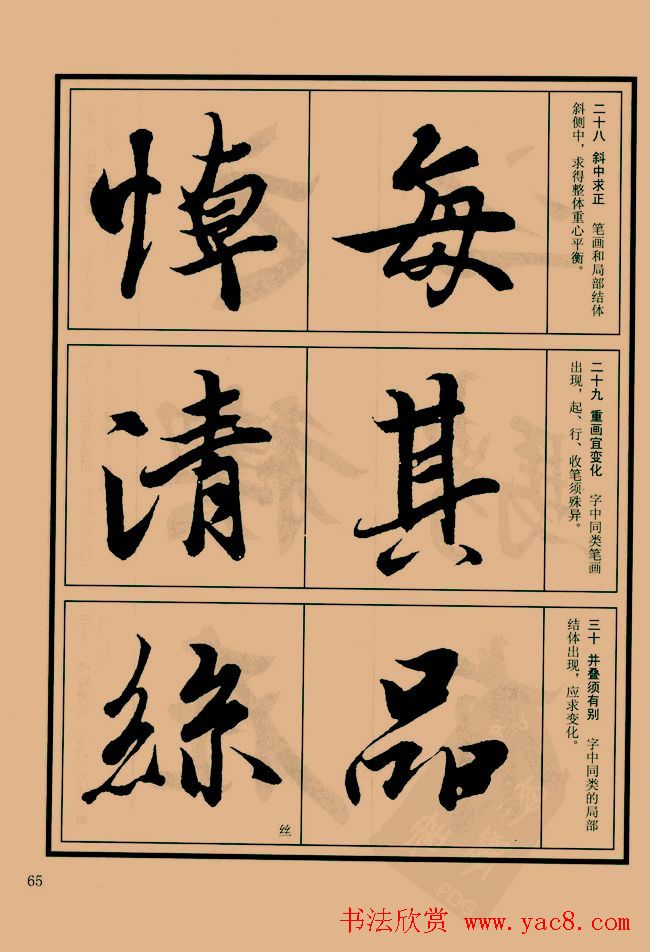 二十八 斜中求正 笔画和局部结体
斜侧中，求得整体重心平衡。
每
悼
二十九 重画宜变化 字中同类笔画
出现，起、行、收笔须殊异。
其
清
三十 并叠须有别 字中同类的局部
结体出现，应求变化。
品
絲
丝
65
书法欣赏 www.yac8.com